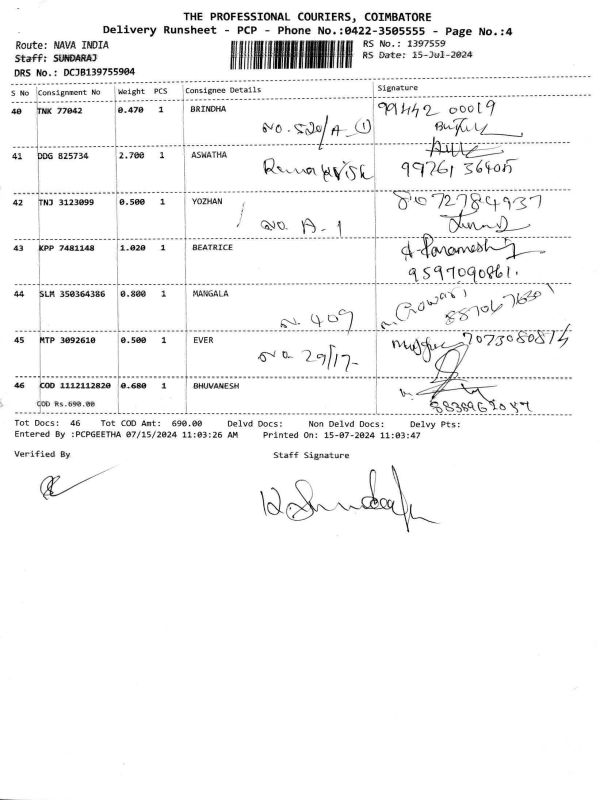 THE PROFESSIONAL COURIERS, COIMBATORE
Delivery Runsheet - PCP - Phone No.:0422-3505555 - Page No.:4
Route: NAVA INDIA
RS No.: 1397559
Staff: SUNDARAJ
RS Date: 15-Jul-2024
DRS No.: DCJB139755904
S No Consignment No Weight PCS Consignee Details Signature
40 TNK 77042 0.470 1 BRINDHA 99442 00019
No. 520/A ①
41 DDG 825734 2.700 1 ASWATHA
99761 36405
42 TNJ 3123099 0.500 1 YOZHAN 8072784937
No A-1
43 KPP 7481148 1.020 1 BEATRICE
9597090861.
44 SLM 350364386 0.800 1 MANGALA
N. 409
45 MTP 3092610 0.500 1 EVER 7073080814
No 29/17-
46 COD 1112112820 0.680 1 BHUVANESH
COD Rs.690.00
Tot Docs: 46 Tot COD Amt: 690.00 Delvd Docs: Non Delvd Docs: Delvy Pts:
Entered By :PCPGEETHA 07/15/2024 11:03:26 AM Printed On: 15-07-2024 11:03:47
Verified By Staff Signature